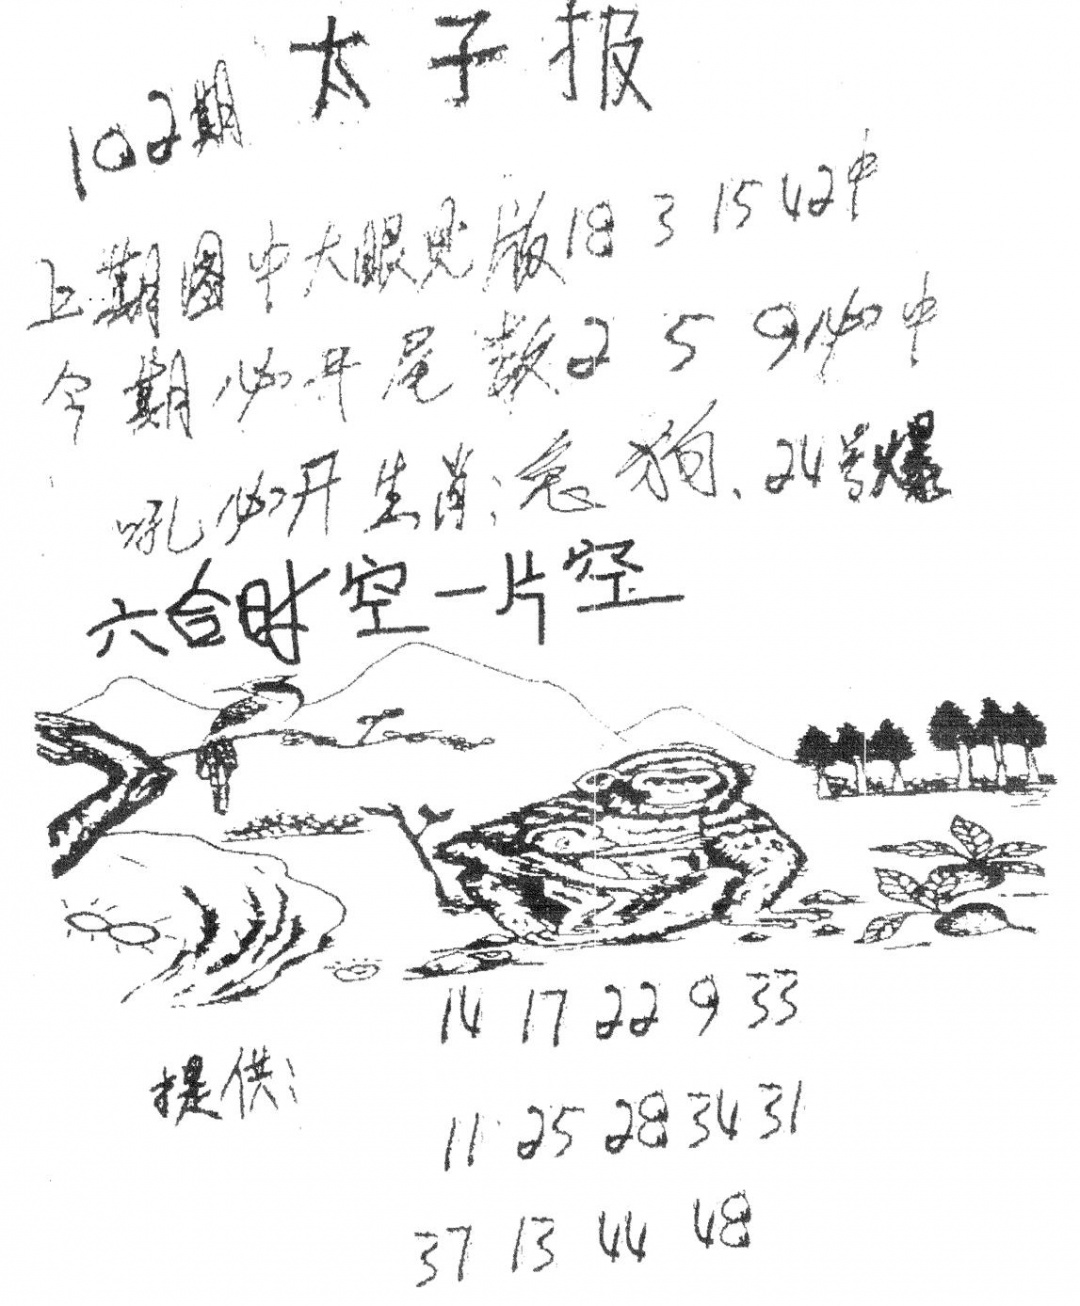 太子报
102期
上期图中大眼见版18 3 15 42中
今期必开尾数2 5 9必中
吼必开生肖:兔 狗、24号爆
六合时空一片空
14 17 22 9 33
提供:
11 25 28 34 31
37 13 44 48